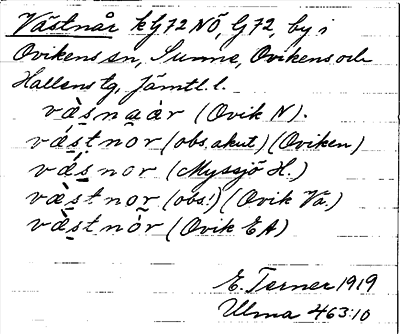 Västnår kG72NÖ, G72, by i
Ovikens sn, Sunne, Ovikens och
Hallens tg, Jämtl. l.
væ̀snaàr (Ovik N).
vǽstnor (obs. akut) (Oviken)
vǽsnor (Myssjö H.)
væ̀stnor (obs!) (Ovik Vä.)
væ̀stnòr (Ovik EA)
E. Terner 1919
Ulma 463:10